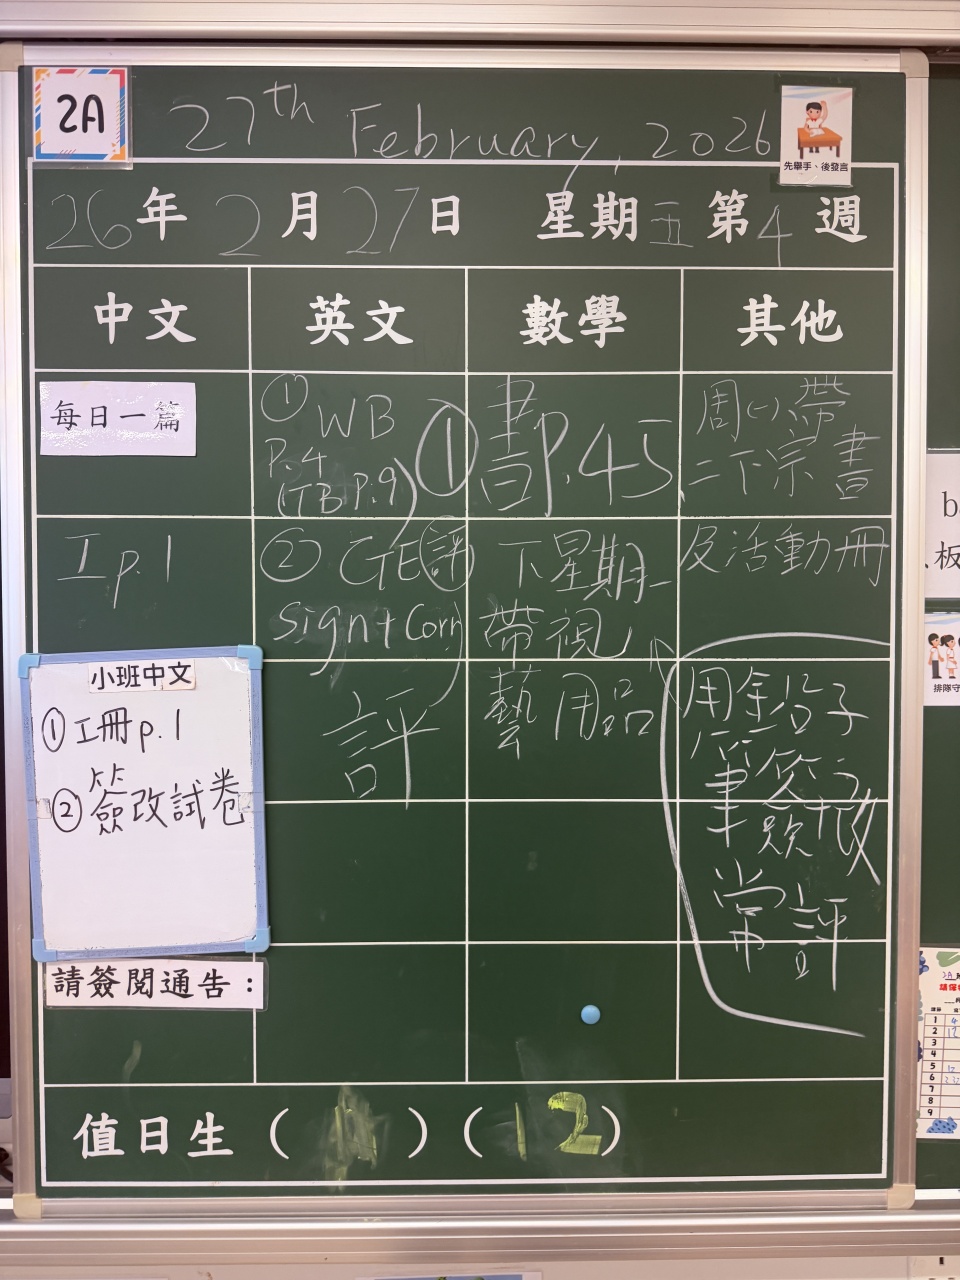 2A
27th February, 2026
先舉手、後發言
26年2月27日 星期五 第4週
中文 英文 數學 其他
每日一篇
I p.1
小班中文
①工冊p.1
②簽改試卷
請簽閱通告：
① WB
P.4
(TB P.9)
② GE評
Sign+Corr
評
① 書P.45
下星期一
帶視
藝用品
周(一)帶
二下宗書
及活動冊
用鉛子
筆簽改
常評
值日生（ ）（12）
板
排隊守
2A
1
2
3
4
5
6
7
8
9